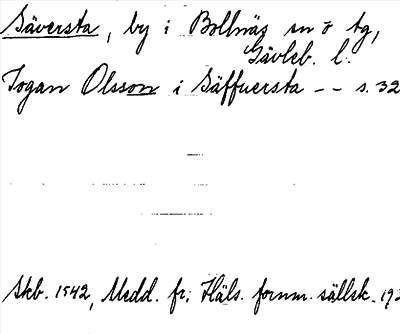 Säversta, by i Bollnäs sn o tg,
Gävleb. l.
Jogan Olsson i Säffuersta -- s. 32
Skb. 1542, Medd. fr. Häls. fornm. sällsk. 193